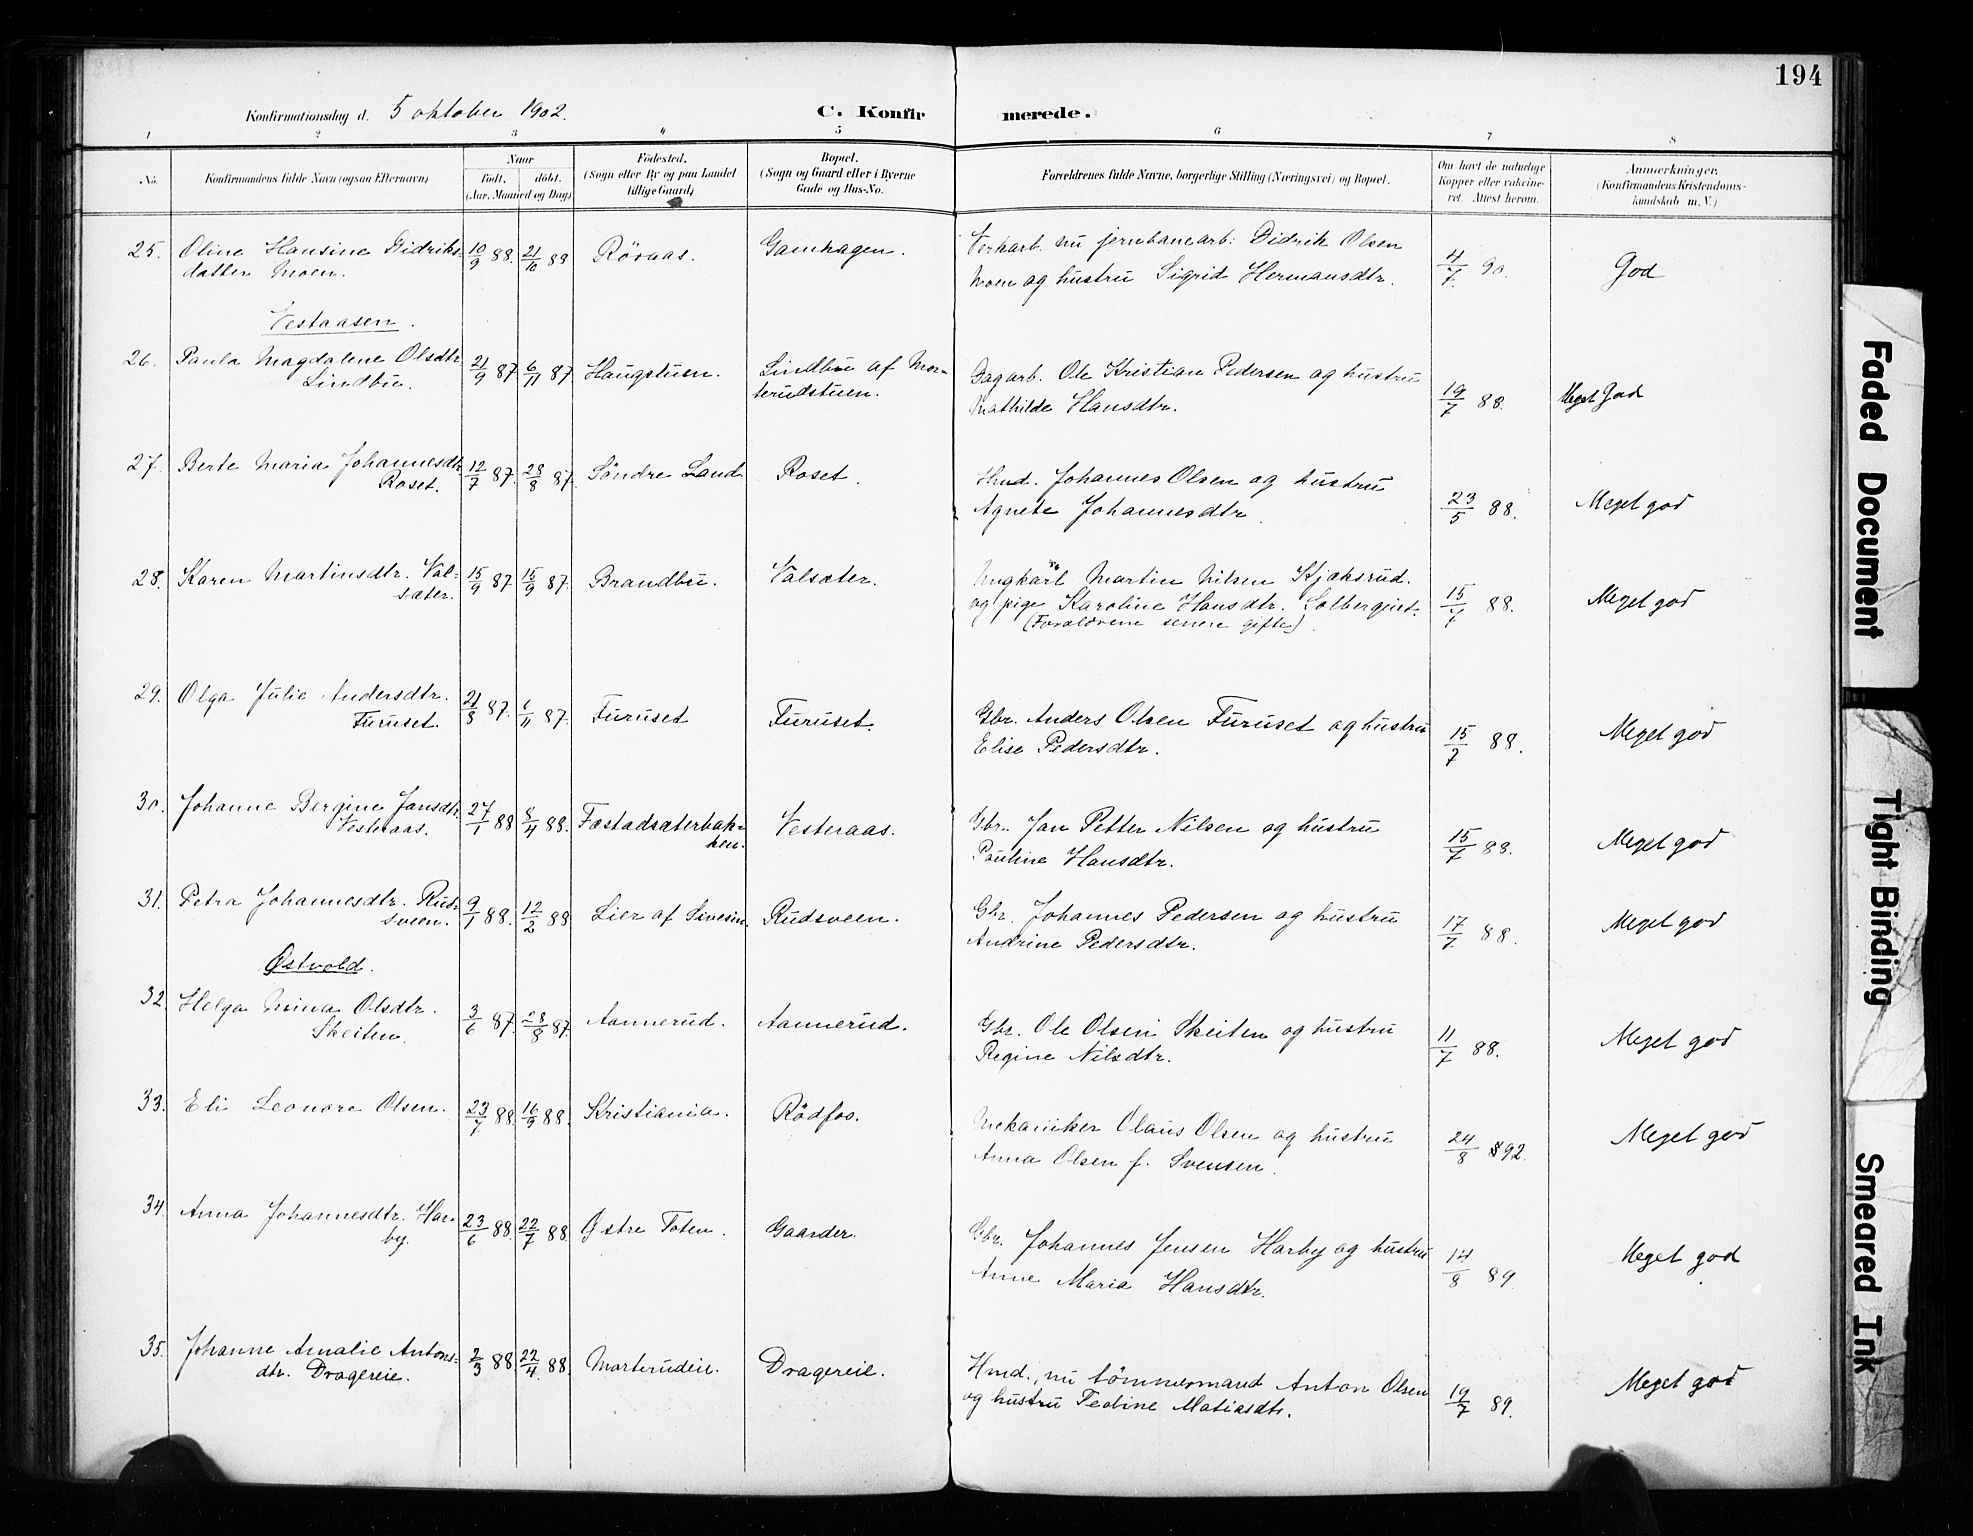 194
Konfirmationsdag d. 5 oktober 1902.
C. Konfirmerede.
1 2 3 4 5 6 7 8
No.
Konfirmandens fulde Navn (ogsaa Efternavn)
Naar
Födt. döbt.
(Aar, Maaned og Dag)
Födested.
(Sogn eller By og paa Landet
tillige Gaard)
Bopæl.
(Sogn og Gaard eller i Byerne
Gade og Hus-No.
Forældrenes fulde Navne, borgerlige Stilling (Næringsvei) og Bopæl.
Om havt de naturlige
Kopper eller vakcine-
ret. Attest herom.
Anmærkninger.
(Konfirmandens Kristendoms-
kundskab m. V.)
25. Oline Hansine Didriks- 10/9 88. 21/10 88 Röraas. Gamhagen. Verkarb. nu jernbanearb. Didrik Olsen 4/7 90. God
datter Moen. Moen og hustru Sigrid Hermansdtr.
Vestaasen.
26. Paula Magdalene Olsdtr. 21/9 87. 6/11 87. Haugstuen. Lindbu af Mor- Dagarb. Ole Kristian Pedersen og hustru 19/7 88. Meget God
Lindbu. terudstuen. Mathilde Hansdtr.
27. Berte Maria Johannesdtr. 12/7 87. 28/8 87. Söndre Land Roset. Hmd. Johannes Olsen og hustru 23/5 88. Meget god
Roset. Agnete Johannesdtr.
28. Karen Martinsdtr. Val- 15/9 87. 15/9 87. Brandbu. Valsæter. Ungkarl Martin Nilsen Kjæksrud. 15/7 88. Meget god
sæter. og pige Karoline Hansdtr. Solbergeiet.
(Forældrene senere gifte)
29. Olga Julie Andersdtr. 21/8 87. 6/11 87. Furuset Furuset. Gbr. Anders Olsen Furuset og hustru 15/7 88. Meget god
Furuset. Elise Pedersdtr.
30. Johanne Bergine Jansdtr. 27/1 88 8/4 88. Fæstadsæterbak- Vesteraas. Gbr. Jan Petter Nilsen og hustru 15/7 88. Meget god
Vesteraas. ken. Pauline Hansdtr.
31. Petra Johannesdtr. Rud- 9/1 88. 12/2 88 Lier af Sivesin. Rudsveen. Gbr. Johannes Pedersen og hustru 17/7 88. Meget god
sveen. Andrine Pedersdtr.
Östvold.
32. Helga Mina Olsdtr. 3/6 87. 28/8 87. Aannerud. Aannerud. Gbr. Ole Olsen Skeiten og hustru 11/7 88. Meget god
Skeiten. Regine Nilsdtr.
33. Eli Leonore Olsen. 23/7 88. 16/9 88. Kristiania. Rödfos. Mekaniker Olaus Olsen og hustru 24/8 92. Meget god
Anna Olsen f. Svensen.
34. Anna Johannesdtr. Har- 23/6 88. 22/7 88. Østre Toten. Gaarder. Gbr. Johannes Jensen Harby og hustru 14/8 89. Meget god
by. Anne Maria Hansdtr.
35. Johanne Amalie Antons- 2/3 88. 22/4 88. Morterudeie. Dragereie. Hmd., nu tömmermand Anton Olsen 19/7 89. Meget god
dtr. Dragereie. og hustru Teoline Matiasdtr.
Faded Document
Tight Binding
Smeared Ink